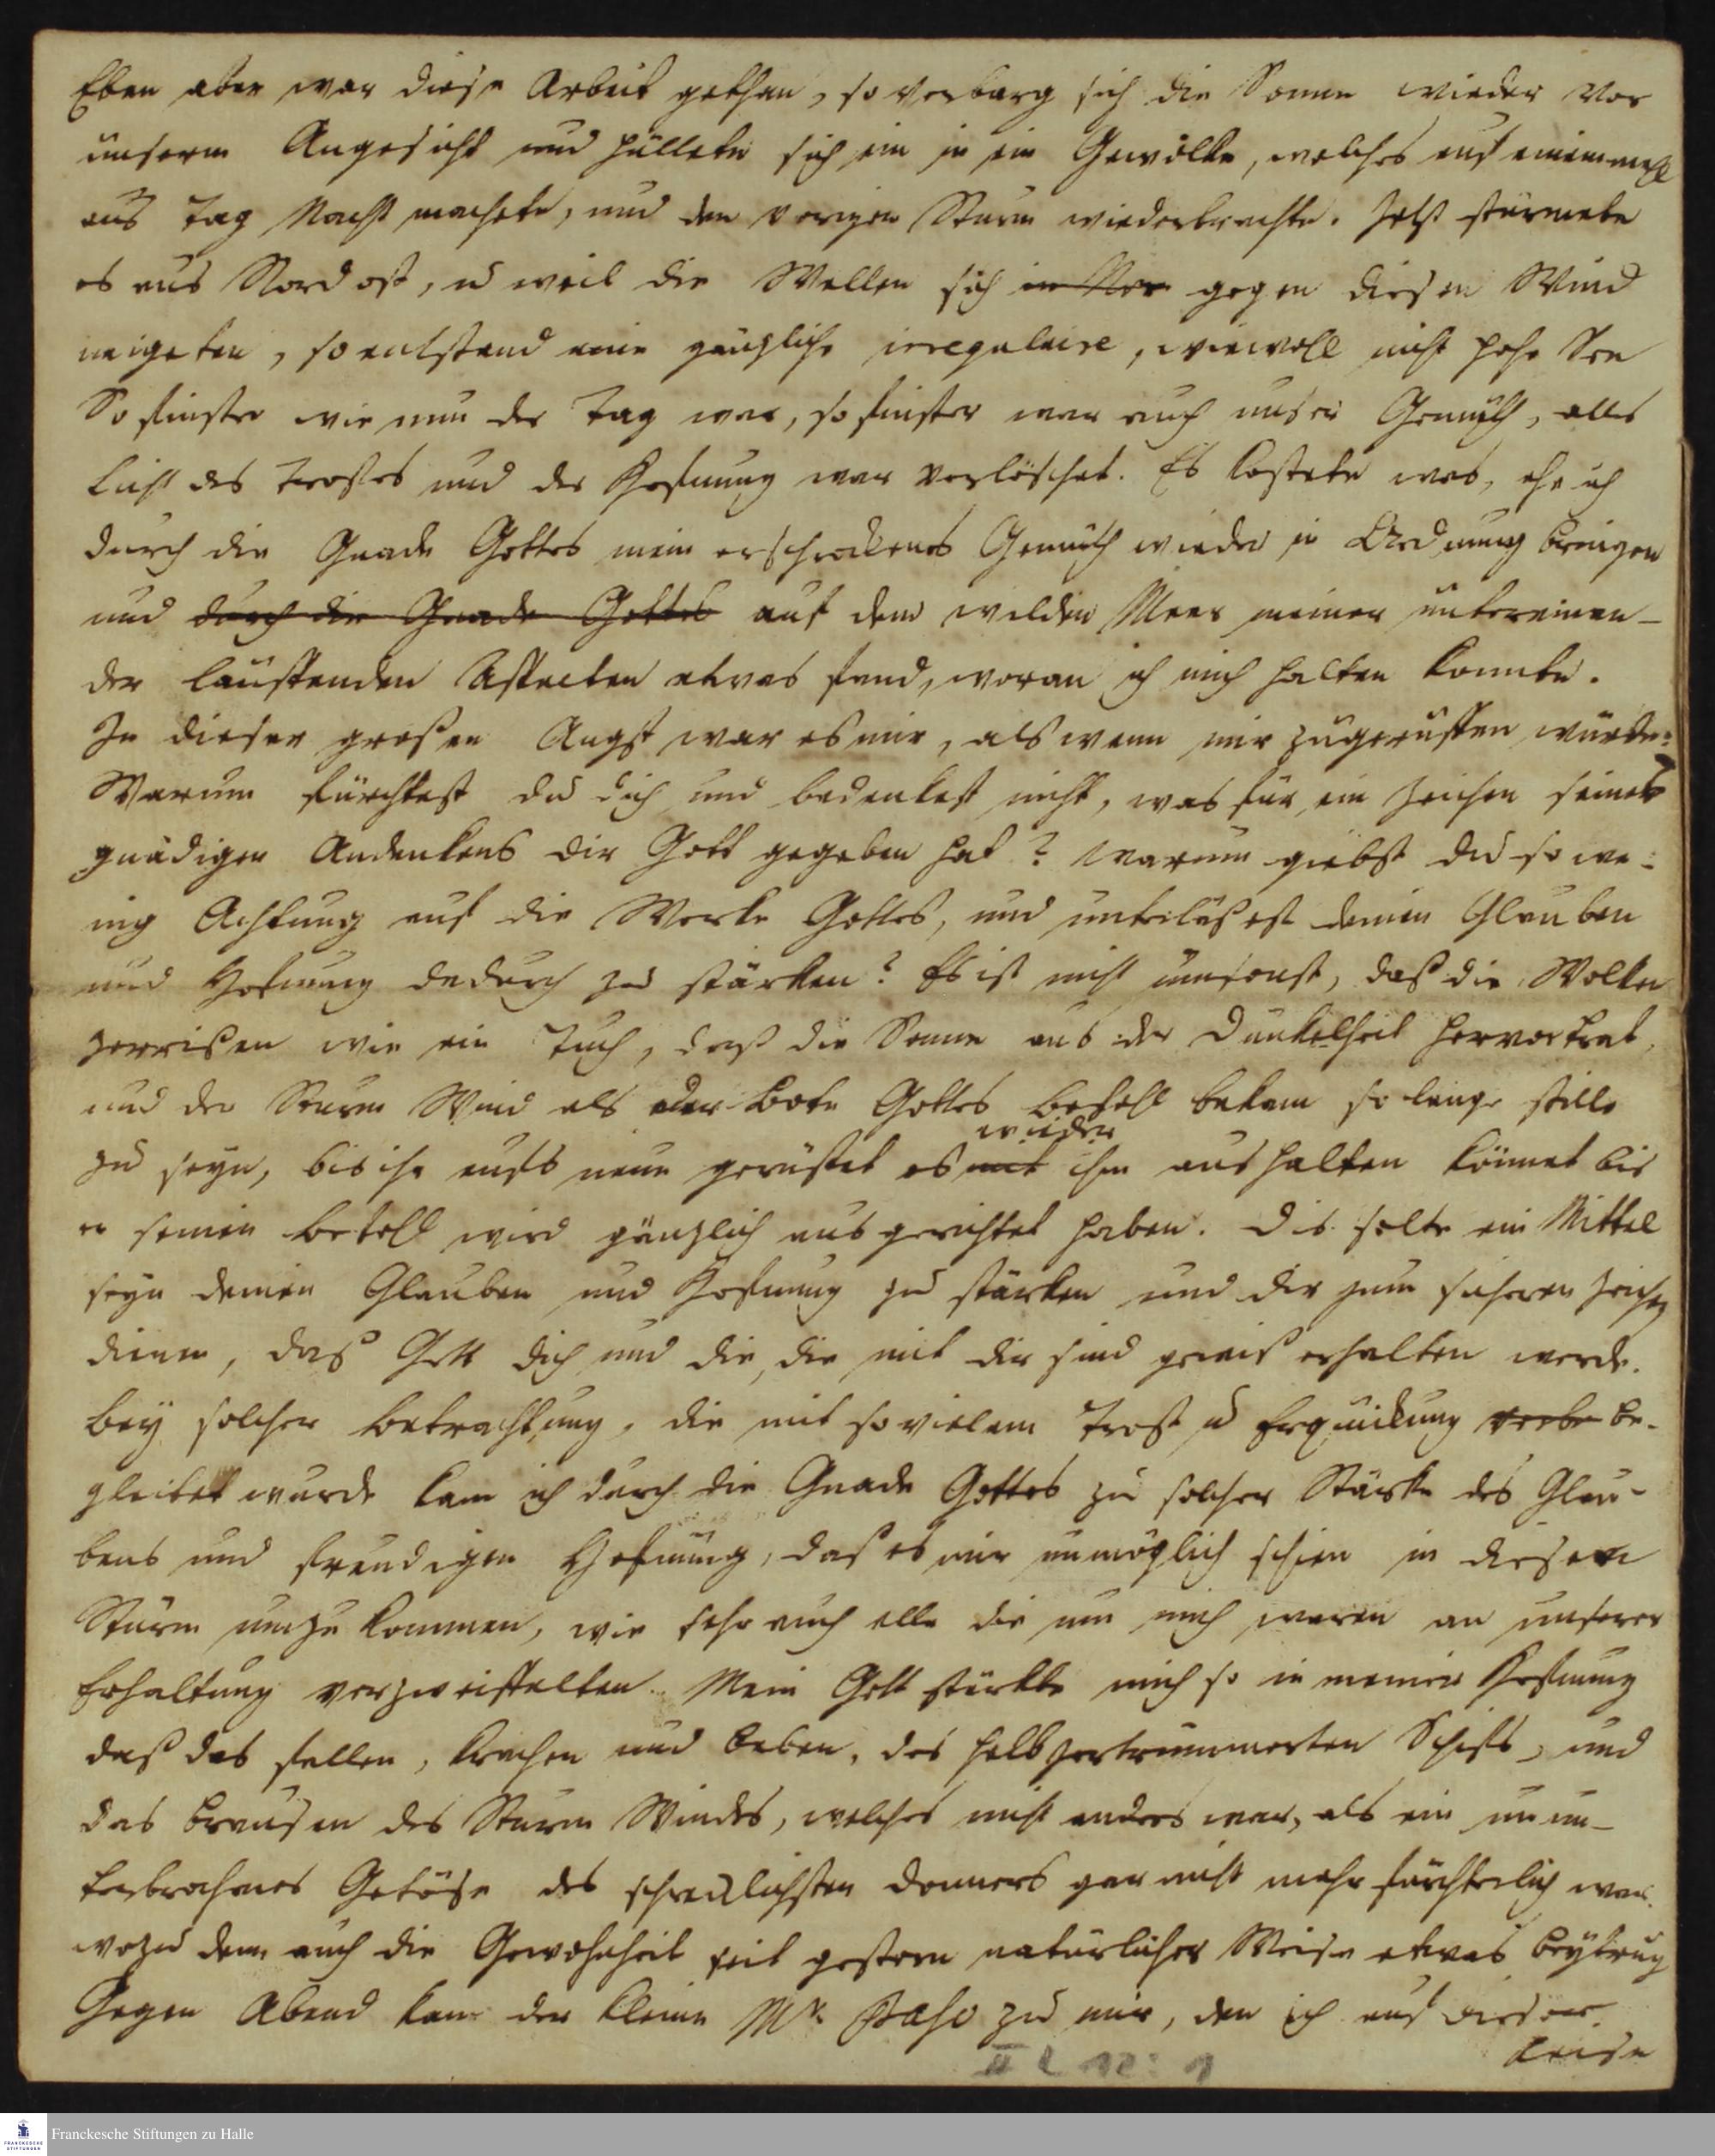 Eben aber war diese Arbeit gethan, so verbarg sich die Sonne wieder vor
unserm Angesicht und hüllete sich ein in ein Gewölke, welches auf einenmahl
aus Tag Nacht machete, und den vorigen Sturm wiederbrachte. Jetzt stürmete
es aus Nord ost, u weil die Wellen sich in Nor gegen diesen Wind
neigeten, so entstand eine gänzliche irregulaire, wiewoll nicht hohe See
So finster wie nun der Tag war, so finster war auch unser Gemüth, alles
Licht des Trostes und der Hofnung war verlöschet. Es kostete was, ehe ich
durch die Gnade Gottes mein erschrockenes Gemüth wieder in Ordnung bringen
und durch die Gnade Gottes auf dem wilden Meer meiner untereinan-
der lauffenden Affecten etwas fand, woran ich mich halten konnte.
In dieser großen Angst war es mir, als wenn mir zugeruffen würde:
Warum fürchtest du dich und bedenkest nicht, was für ein Zeichen seines
gnädigen Andenkens dir Gott gegeben hat? Warum giebst du so we-
nig Achtung auf die Werke Gottes, und unterläßest deinen Glauben
und Hofnung dadurch zu stärken? Es ist nicht umsonst, daß die Wolken
zerrißen wie ein Tuch, daß die Sonne aus der Dunkelheit hervortrat,
und der Sturm Wind als der Bote Gottes Befehl bekam so lange stille
wieder
zu seyn, bis ihr aufs neue gerüstet es mit ihm aushalten könnet bis
er seinen Befehl wird gänzlich ausgerichtet haben. Dis solte ein Mittel
seyn deinen Glauben und Hofnung zu stärken und dir zum sichern Zeichen
dienen, daß Gott dich und die, die mit dir sind gewiß erhalten werde.
Bey solcher Betrachtung, die mit so vielem Trost u Erquickung be-
gleitet wurde kam ich durch die Gnade Gottes zu solcher Stärke des Glau-
bens und freudigen Hofnung, daß es mir unmöglich schien in diesem
Sturm umzukommen, wie sehr auch alle die um mich waren an unserer
Erhaltung verzweiffelten. Mein Gott stärkte mich so in meiner Hofnung
daß das fallen, Krachen und Beben, des halb zertrümmerten Schiffs, und
das Brausen des Sturm Windes, welches nicht anders war, als ein unun-
terbrochenes Getöse des schrecklichsten Donners gar nicht mehr fürchterlich war.
wozu denn auch die Gewohnheit seit gestern natürlicher Weise etwas beytrug
Gegen Abend kam der kleine Mr zu mir, den ich auf dieser
Reise
Franckesche Stiftungen zu Halle